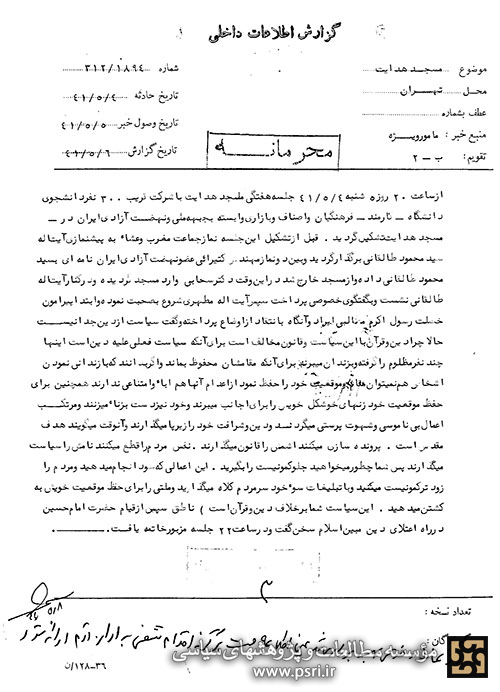 گزارش اطلاعات داخلی
موضوع مسجد هدایت
شماره ۳۱۲/۱۸۹۴
محل تهران
تاریخ حادثه ۴۱/۵/۴
عطف بشماره
تاریخ وصول خبر ۴۱/۵/۵
منبع خبر: مامورویژه
تاریخ گزارش ۴۱/۵/۶
تقویم: ب - ۲
محرمانه
ازساعت ۲۰ روز ۵ شنبه ۴۱/۵/۴ جلسه هفتگی مسجد هدایت با شرکت قریب ۳۰۰ نفر دانشجوی
دانشگاه - کارمند - فرهنگیان واصناف وبازاری وابسته بجبهه ملی ونهضت آزادی ایران در -
مسجد هدایت تشکیل گردید . قبل ازتشکیل این جلسه نماز جماعت مغرب وعشاء به پیشنمازی آیت اله
سید محمود طالقانی برگذار گردید وبین دو نماز مهندس کتیرائی عضو نهضت آزادی ایران نامه ای بسید
محمود طالقانی داده واز مسجد خارج شد دراین وقت دکتر سحابی وارد مسجد گردیده ودرکنار آیت اله
طالقانی نشست وبگفتگوی خصوصی پرداخت سپس آیت اله مطهری شروع بصحبت نموده وابتدا پیرامون
خصلت رسول اکرم مطالبی ایراد وآنگاه با انتقاد ازاوضاع پرداخته وگفت سیاست ازدین جدا نیست
حالا چرا دین وقرآن با این سیاست وقانون مخالف است برای آنکه سیاست فعلی علیه دین است اینها
چند نفر مظلوم را گرفته وبزندان میبرند برای آنکه مقامشان محفوظ بماند واگر دیدند که بازندانی نمودن
اشخاص هم نمیتوان موقعیت خود را حفظ نمود از اعدام آنها هم اباء وامتناعی ندارند همچنین برای
حفظ موقعیت خود زنهای خوشگل خویش را برای اجانب میبرند وخود نیز دست بزنا میزنند ومرتکب
اعمال بی ناموسی وشهوت پرستی میگردند ودین وشرافت خود را زیر پا میگذارند وآنوقت میگویند هدف
مقدس است . پرونده سازی میکنند اسمش را قانون میگذارند . نفس مردم را قطع میکنند نامش را سیاست
میگذارند پس شما چطور میخواهید جلو کمونیست را بگیرید . این اعمالی که خود انجام میدهید ومردم را
زودتر کمونیست میکنید وبا تبلیغات سوء خود سر مردم کلاه میگذارید وملتی را برای حفظ موقعیت خویش به
کشتن میدهید . این سیاست شما برخلاف دین وقرآن است ) ناطق سپس ازقیام حضرت امام حسین
در راه اعتلای دین مبین اسلام سخن گفت ودر ساعت ۲۲ جلسه مزبور خاتمه یافت .
۳
تعداد نسخه :
گیرندگان :
۳۶-۱۲۸/ن
مؤسسه مطالعات و پژوهشهای سیاسی
www.psri.ir